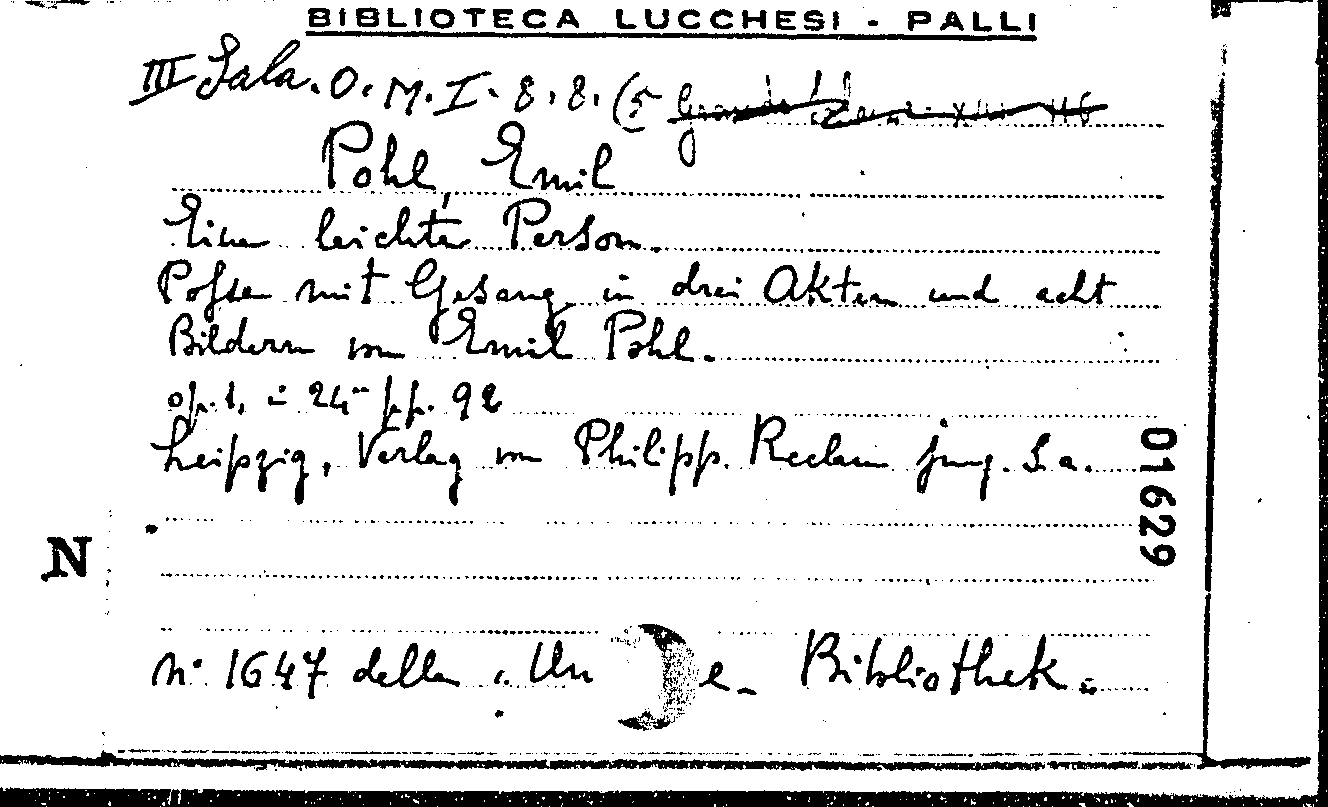 BIBLIOTECA LUCCHESI - PALLI
III Sala. O. M. I. 8. 8. (5
Pohl, Emil
Eine leichte Person.
Possen mit Gesang in drei Akten und acht
Bildern von Emil Pohl.
op. 1, i 24° pp. 92
Leipzig, Verlag von Philipp. Reclam jung. S. a.
01629
N
N° 1647 della "Un e- Bibliothek"